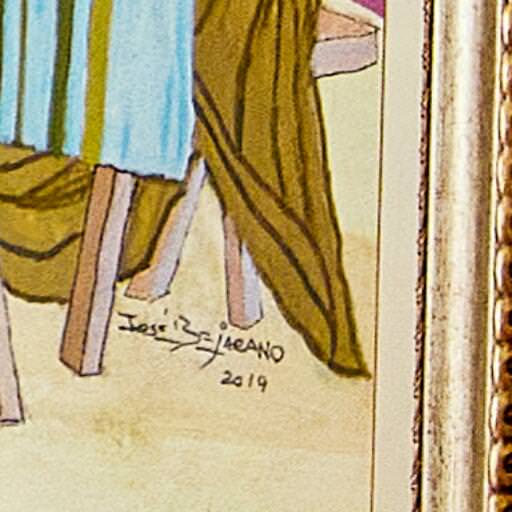 José Bejarano
2019